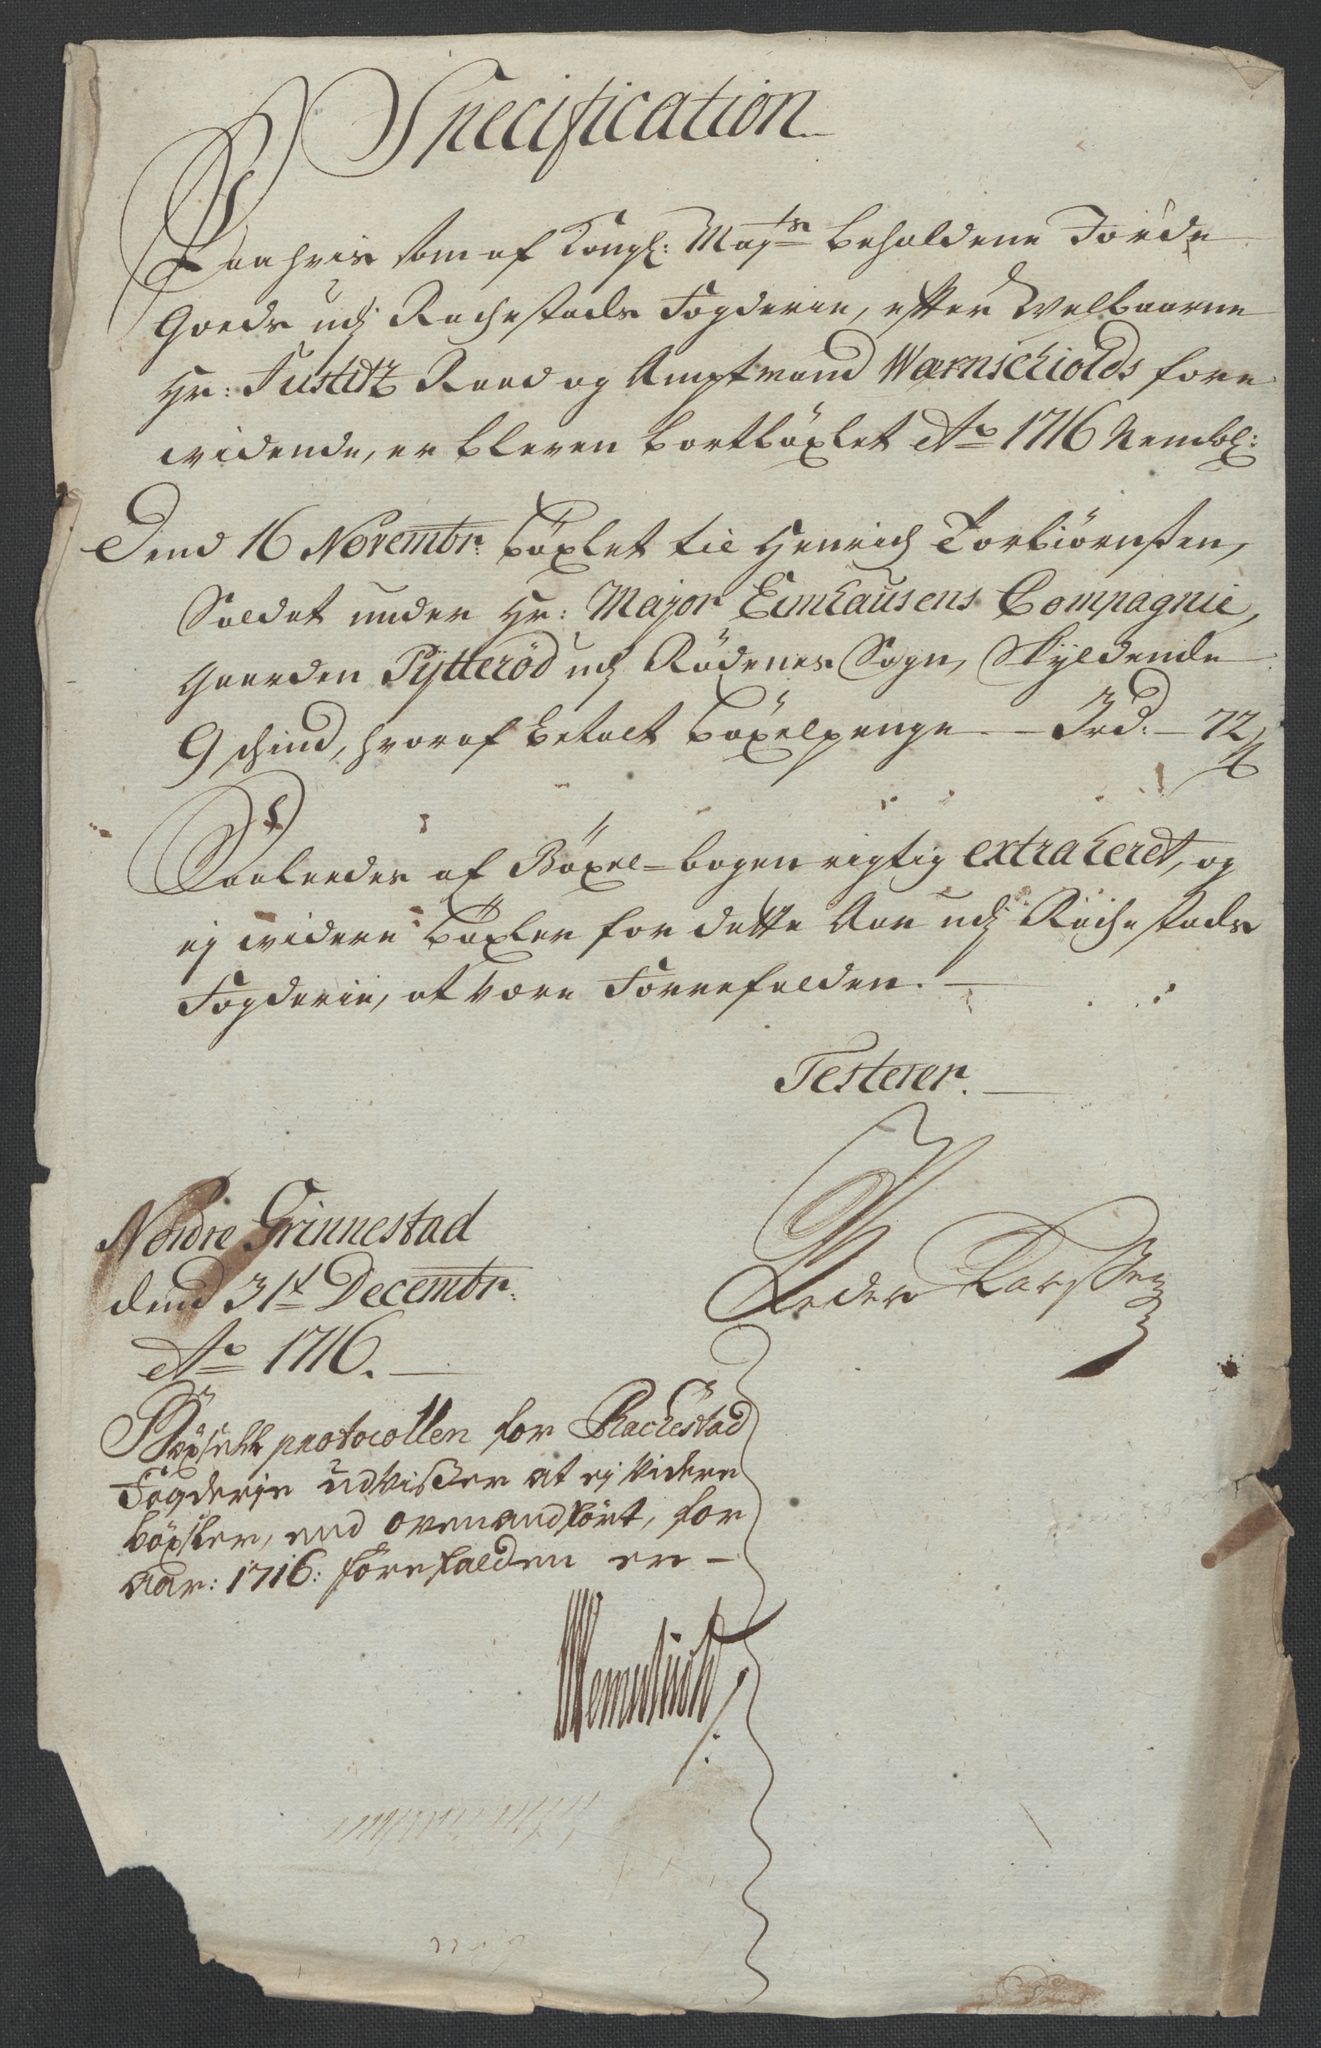 Specification
Paa hvis som af Kongl: Mayts beholdene Jorde
Goeds udj Rachestads Fogderie, efter Welbaarne
Hr: Justitz Raad og Amptmand Wærnschiolds fore
widende, er bleven bortböxlet Ao 1716 Nembl:
Dend 16 Novembr: böxlet til Henrich Torbiørnsten,
Soldat under Hr: Major Eimhausens Compagnie,
Gaarden Tÿtterød udj Rödenes Sogn, Skyldende
9 schind, hvoraf betalt böxelpenge — 3rd. — 72 ß
Saaleedes af Böxel-bogen rigtig extraheret, og
ej widere böxler for dette Aar udj Rachestads
Fogderie, at være Forrefalden. —
Testerer. —
Nordre Grinnestad
dend 31t Decembr:
Ao 1716. —
Peder Larssen
Böxsell protocollen for Rachestad
Fogderje udvisser at ej videre
böxsler, end ovenandfört, for
Aar: 1716: forefalden er —